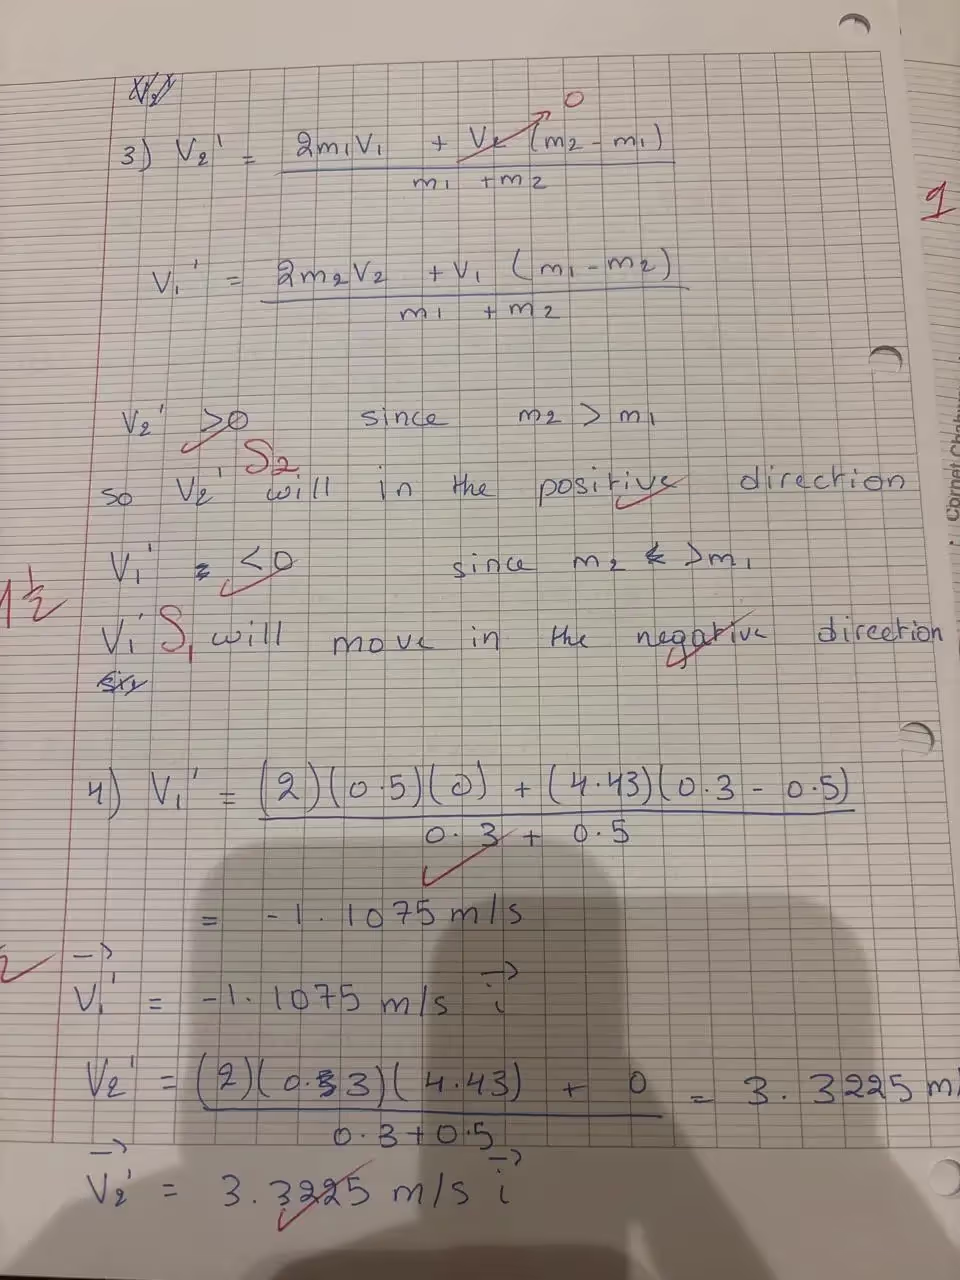 0
3) V₂' = 2m₁V₁ + V₂ (m₂ - m₁)
m₁ + m₂
1
V₁' = 2m₂V₂ + V₁ (m₁ - m₂)
m₁ + m₂
V₂' >0 since m₂ > m₁
S₂
so V₂' will in the positive direction
V₁' = <0 since m₂ > m₁
1 ½
V₁' S₁ will move in the negative direction
4) V₁' = (2)(0.5)(0) + (4.43)(0.3 - 0.5)
0.3 + 0.5
= -1.1075 m/s
V₁'→ = -1.1075 m/s i→
V₂' = (2)(0.3)(4.43) + 0 = 3.3225 m/
0.3 + 0.5
V₂'→ = 3.3225 m/s i→